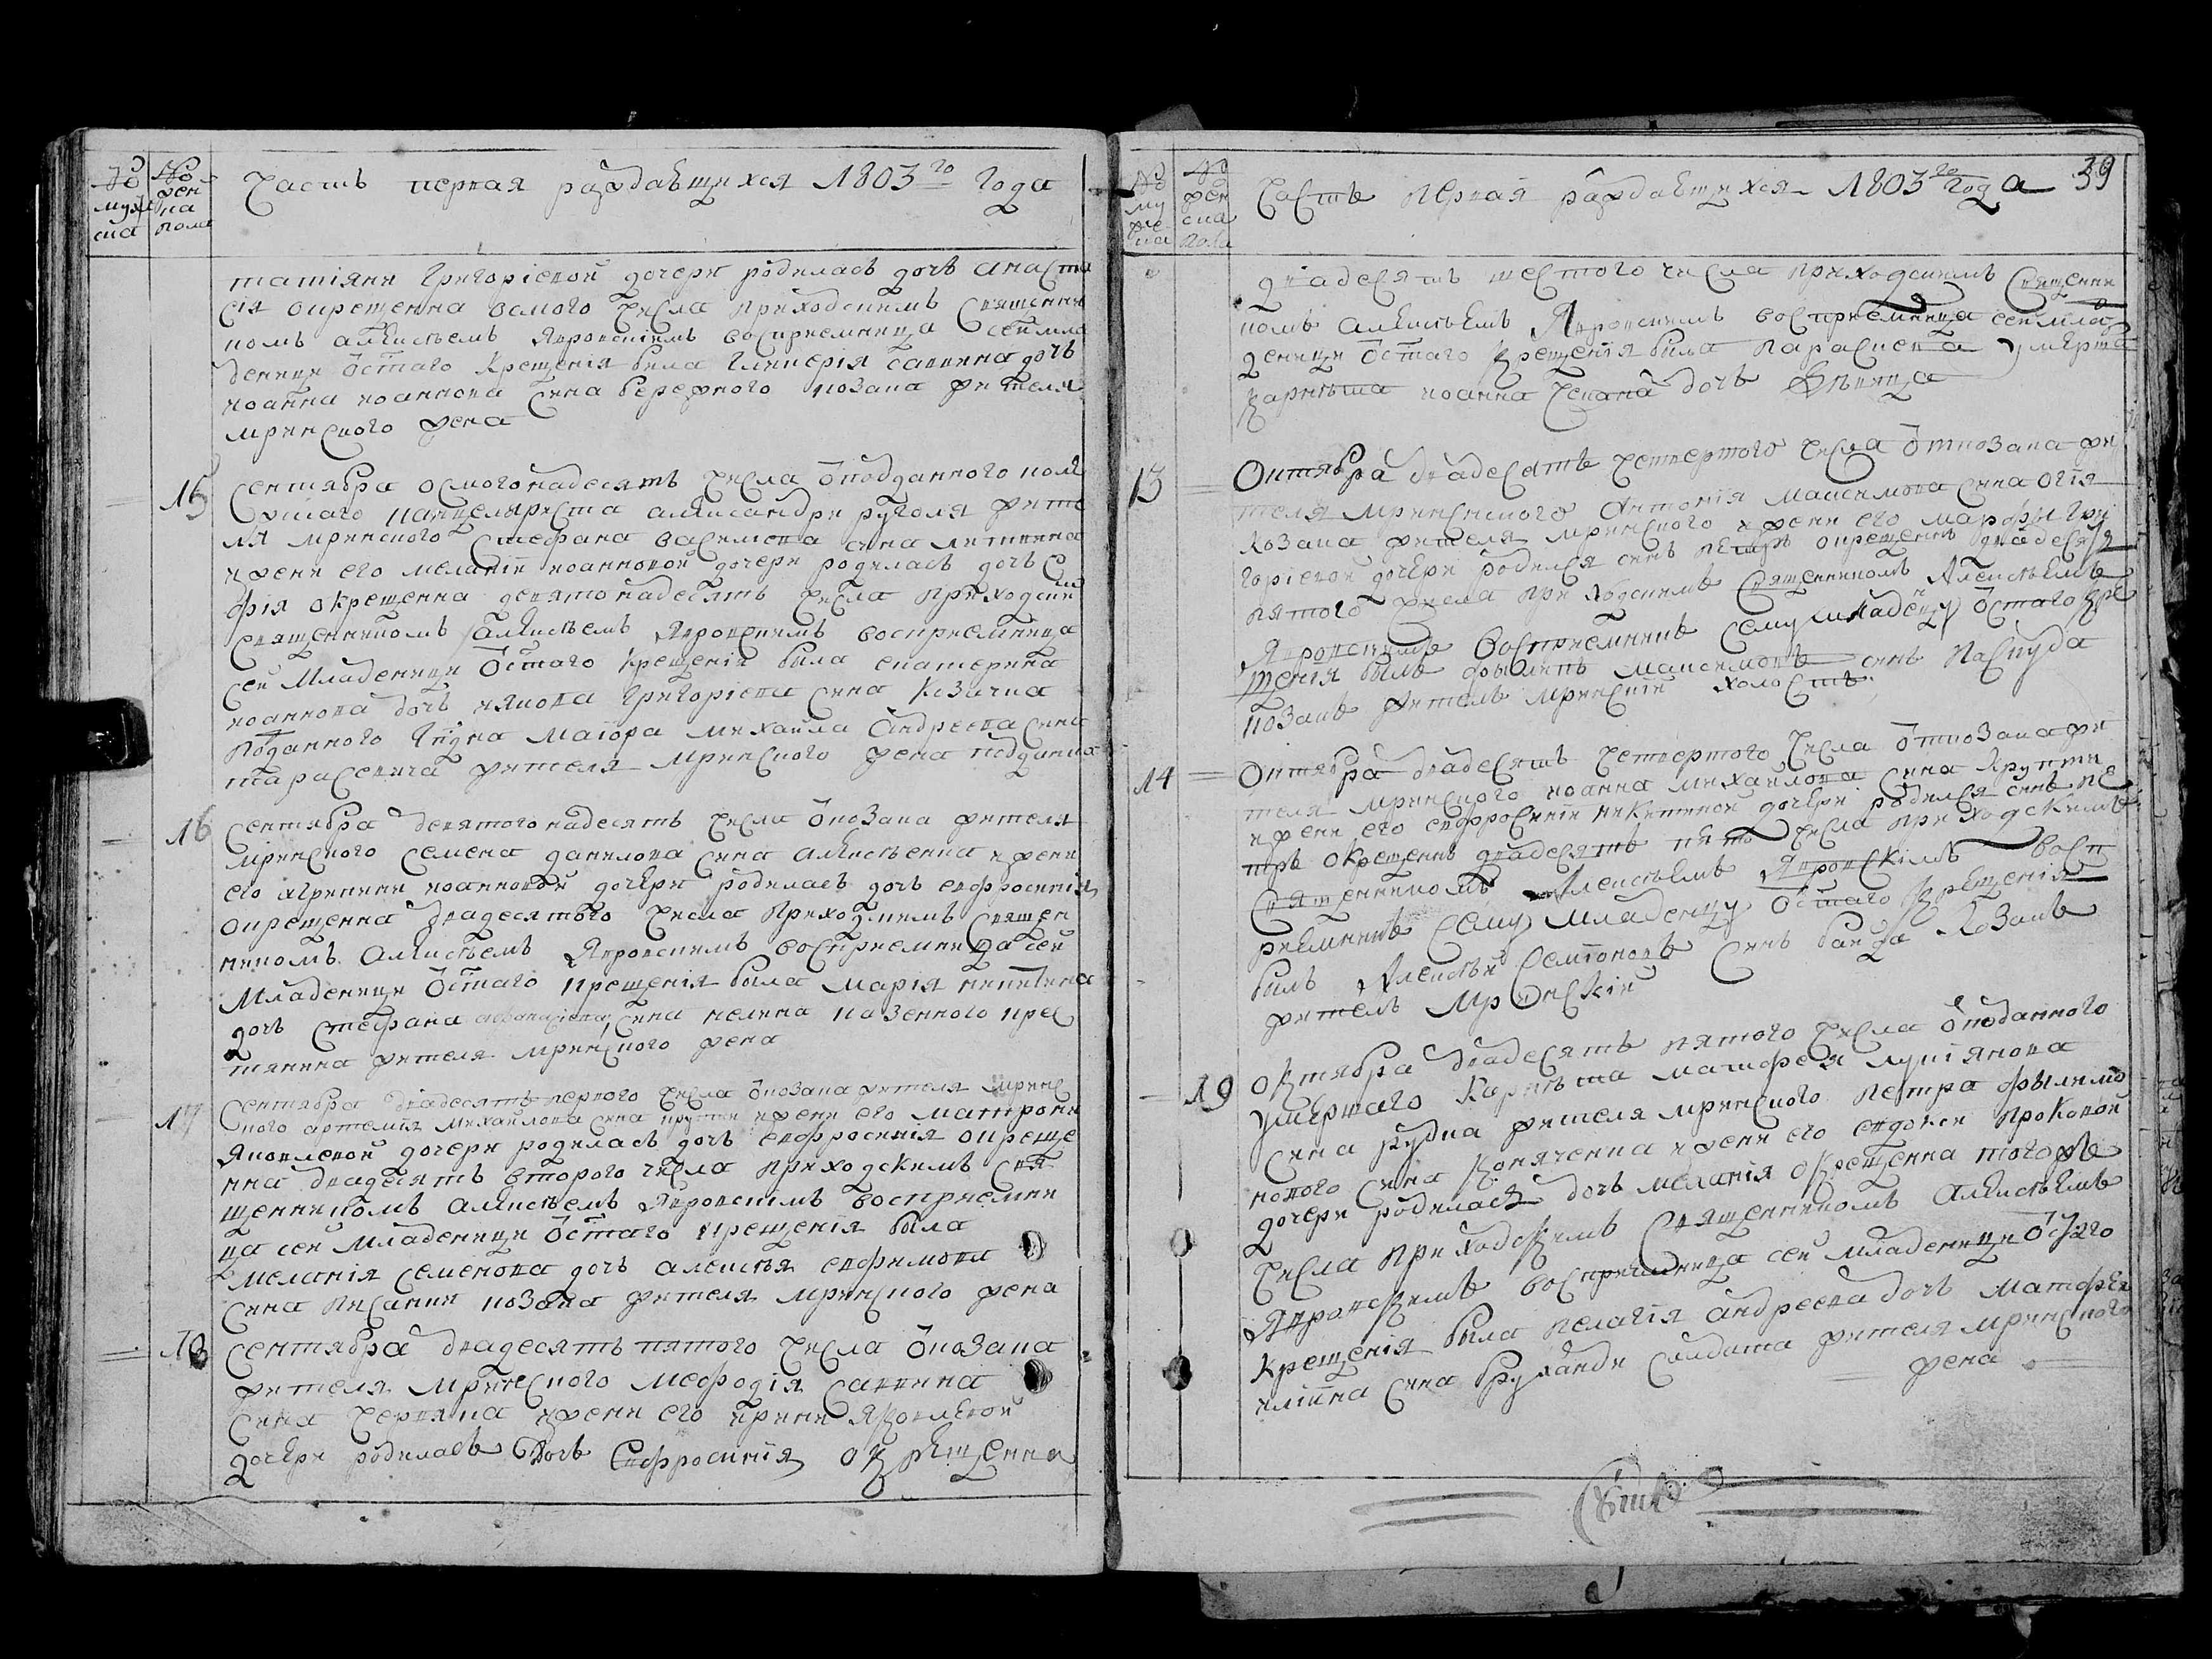 № муж ска
№ жен ска пола
Часть первая раждавщихся 1803 го года
татіяни Григоріевой дочери родилась дочь анаста
сія окрещенна осмого числа приходскимъ священни
комъ алексѣемъ Яворскімъ восприемница сей мла
деници ѿ стаго крещенія била гликерія савина дочь
иоанна иоаннова сина бережного козака жителя
мринского жена
15 сентября осмогонадесять числа ѿ подданного кол
сжкаго канцеляриста александри жителя
ля мринского Стефана василева сина
и жени его меланіи иоанновой дочери родилась дочь со
фія окрещенна девятонадесять числа приходски
священникомъ алексѣемъ Яворскимъ восприемница
сей младеници ѿ стаго крещенія била екатерина
иоаннова дочь якова Григоріева сина козачка
подданного маіора михаила андреева сина
тарасевича жителя мринского жена подданка
16 сентября девятогонадесять числа ѿ козака жителя
мринского семена данилова сина алексѣенка и жени
его агрипини иоанновой дочери родилась дочь евфросинія
окрещенна двадесятого числа приходскимъ священ
никомъ алексѣемъ Яворскимъ восприемница сей
младеници ѿ стаго крещенія била марія никитина
дочь стефана афанасіева сина казенного крес
тянина жителя мринского жена
17 сентября двадесять первого числа ѿ козака жителя мринс
кого артемія михайлова сина крутки и жени его матрони
Яковлевой дочери родилась дочь евфросинія окреще
нна двадесять второго числа приходскимъ свя
щенникомъ алексѣемъ Яворскімъ восприемни
ца сей младеници ѿ стаго крещенія била
меланія семенова дочь алексѣя евфимова
сина козака жителя мринского жена
18 сентября двадесять пятого числа ѿ козака
жителя мринского мефодія саввина
сина червяка и жени его ирини яковлевой
дочери родилась дочь евфросинія окрещенна
№ му же ска
№ жен ска пола
Часть первая раждавщихся 1803 го года 39
двадесять шестого числа приходскимъ священни
комъ алексѣемъ Яворскимъ восприемница сей мла
деници ѿ стаго крещенія била параскева умерша
иоанна дочь дѣвица
13 октября двадесять четвертого числа ѿ козака жи
теля мринского Антонія максимова сина огія
козака жителя мринского и жени его марфи гри
горіевой дочери родился синъ петръ окрещенъ двадесять
пятого числа приходскимъ священникомъ алексѣемъ
Яворскимъ восприемникъ сему младенцу ѿ стаго кре
щенія билъ филипъ максимовъ синъ паскуда
козакъ житель мринскій холостъ
14 октября двадесять четвертого числа ѿ козака жи
теля мринского иоанна михайлова сина крутки
и жени его евфросиніи никитиной дочери родился синъ пе
тръ окрещенъ двадесять пято числа приходскимъ
священникомъ Алексѣемъ Яворскімъ восп
риемникъ сему младенцу ѿ стаго крещенія
билъ Алексѣй семіоновъ синъ козакъ
житель мринскій
19 октября двадесять пятого числа ѿ подданного
умершаго матфея лукіянова
сина рудка жителя мринского петра филимо
нового сина и жени его евдокіи прокопой
дочери родилась дочь меланія окрещенна тогоже
числа приходскимъ священникомъ алексѣемъ
Яворскимъ восприемница сей младеници ѿ стаго
крещенія била пелагія андреева дочь матфея
иліина сина солдата жителя мринского
жена